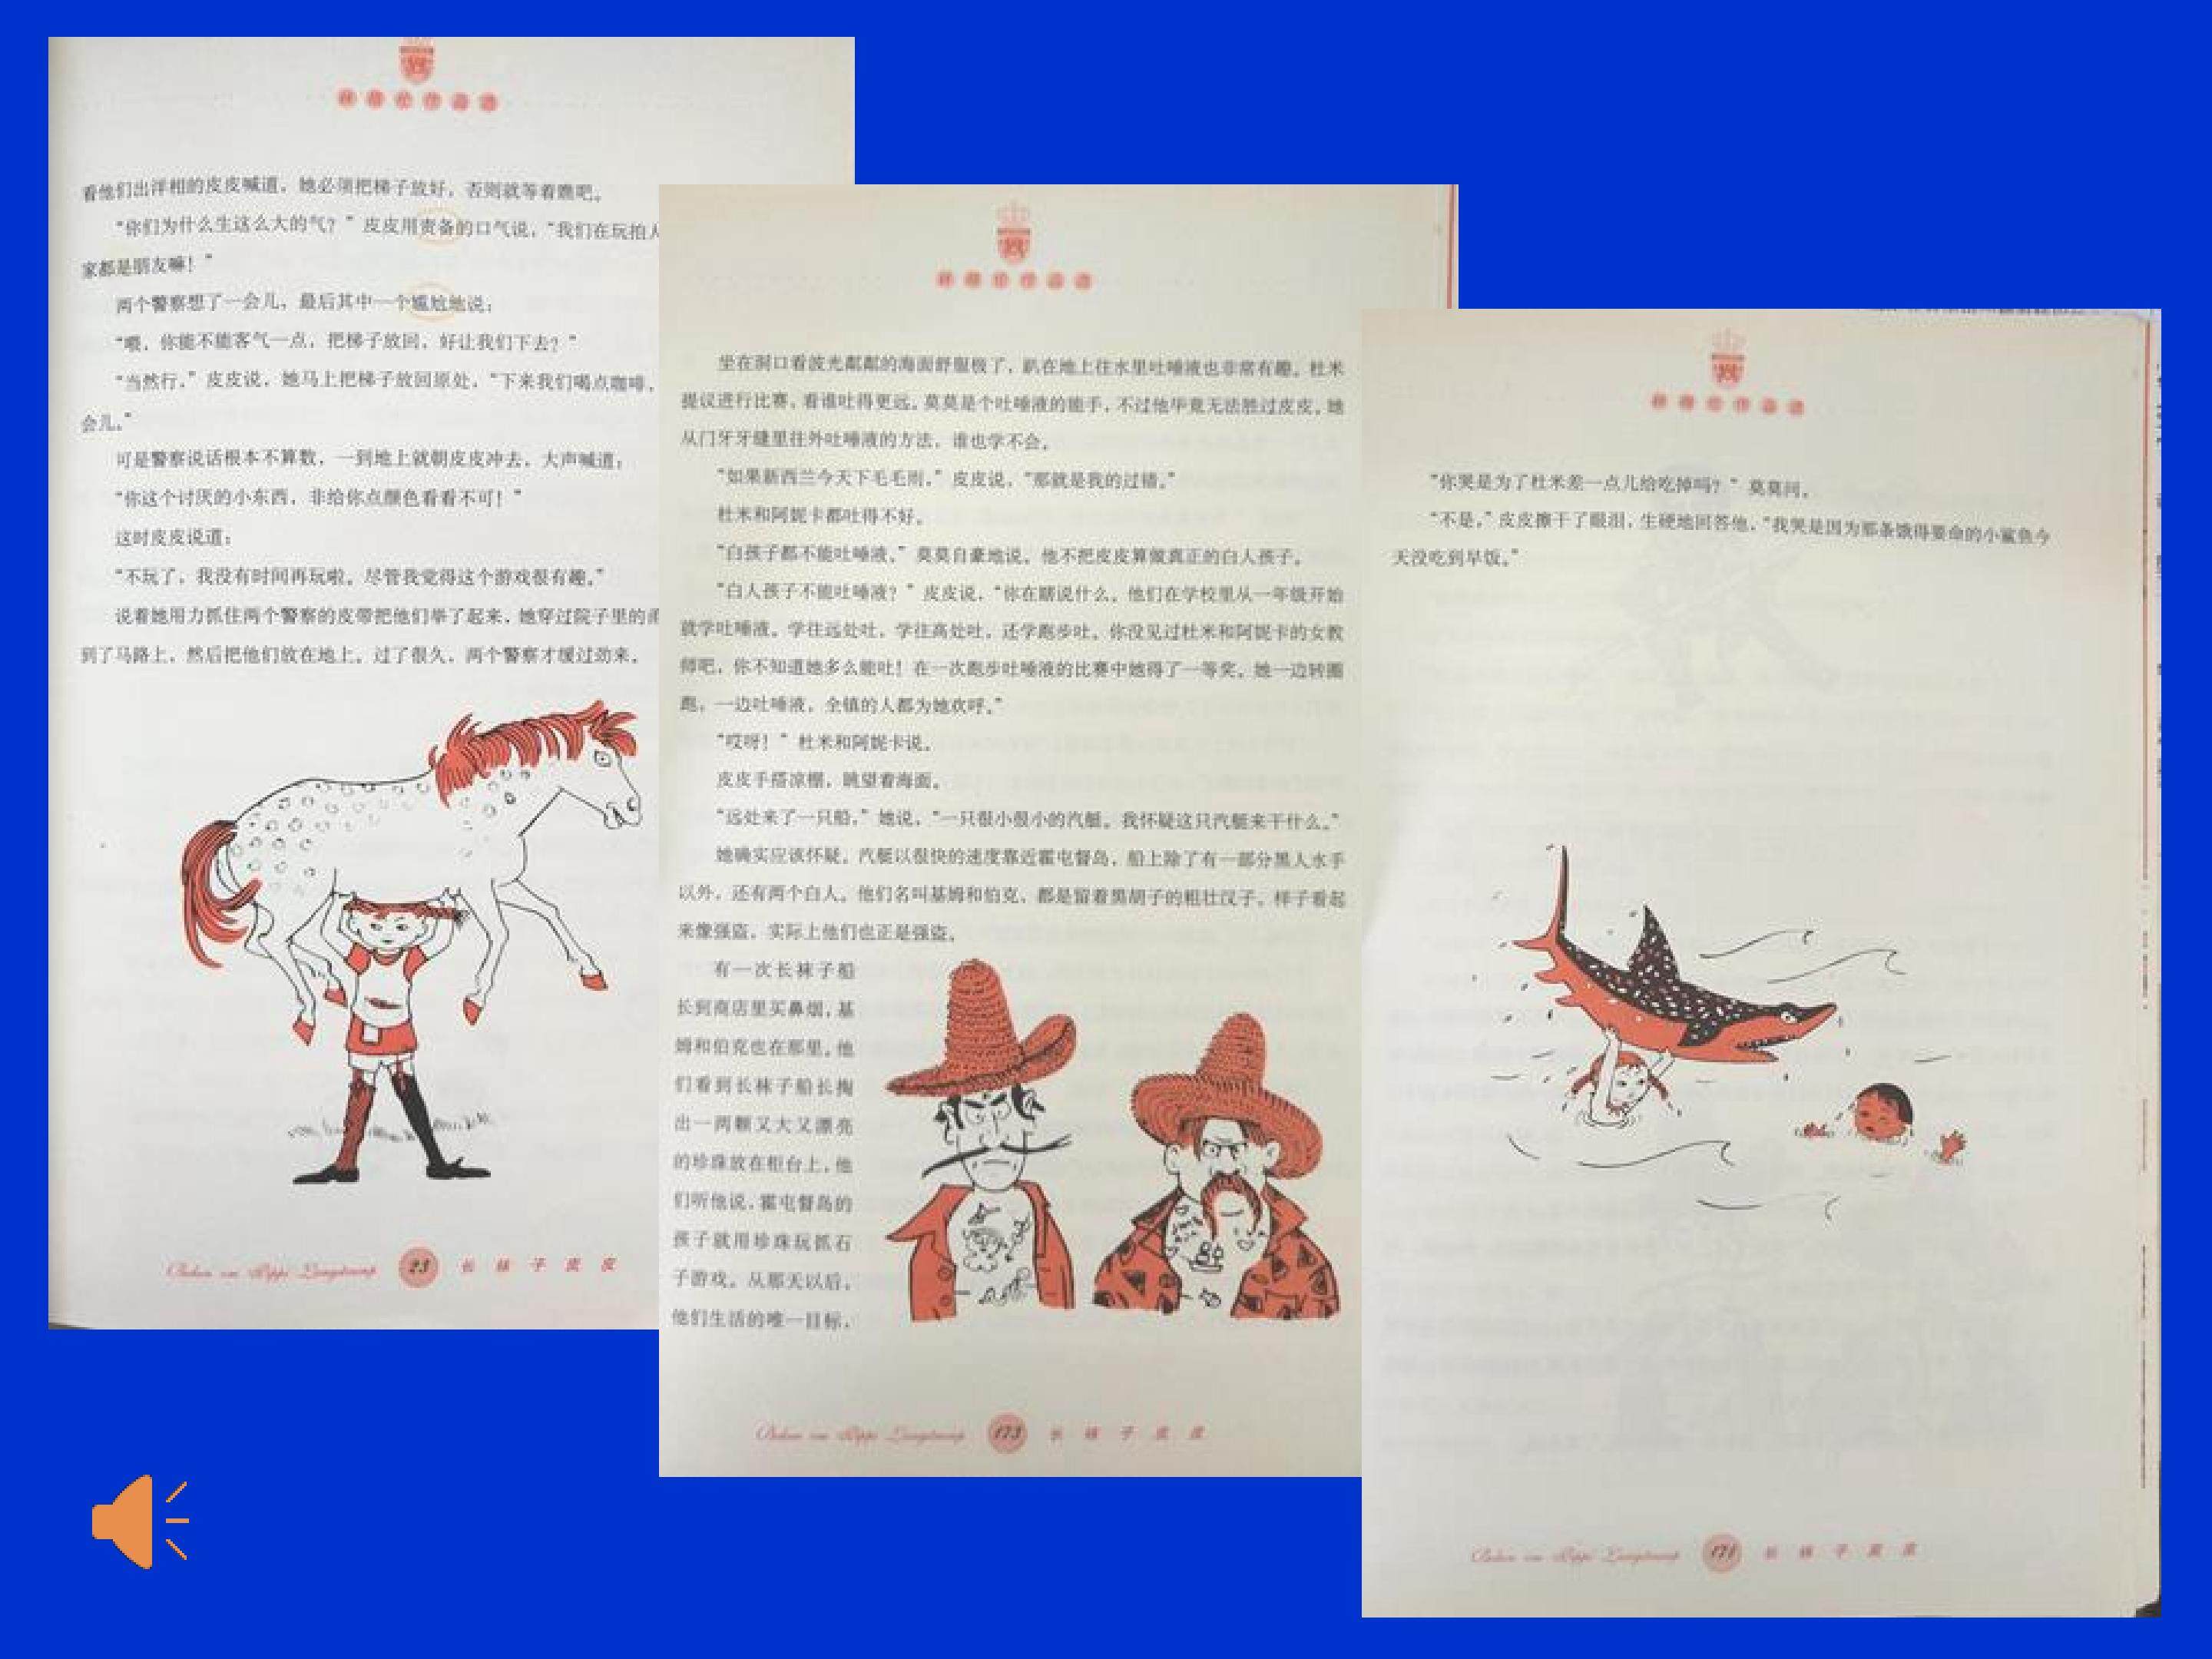 林格伦作品选
看他们出洋相的皮皮喊道，她必须把梯子放好，否则就等着瞧吧。
“你们为什么生这么大的气？”皮皮用责备的口气说，“我们在玩拍人
家都是朋友嘛！”
两个警察想了一会儿，最后其中一个尴尬地说：
“喂，你能不能客气一点，把梯子放回，好让我们下去？”
“当然行，”皮皮说，她马上把梯子放回原处，“下来我们喝点咖啡，
会儿。”
可是警察说话根本不算数，一到地上就朝皮皮冲去，大声喊道：
“你这个讨厌的小东西，非给你点颜色看看不可！”
这时皮皮说道：
“不玩了，我没有时间再玩啦。尽管我觉得这个游戏很有趣。”
说着她用力抓住两个警察的皮带把他们举了起来，她穿过院子里的
到了马路上，然后把他们放在地上。过了很久，两个警察才缓过劲来。
Boken om Pippi Långstrump 23 长袜子皮皮
林格伦作品选
坐在洞口看波光粼粼的海面舒服极了，趴在地上往水里吐唾液也非常有趣。杜米
提议进行比赛，看谁吐得更远。莫莫是个吐唾液的能手，不过他毕竟无法胜过皮皮。她
从门牙牙缝里往外吐唾液的方法，谁也学不会。
“如果新西兰今天下毛毛雨，”皮皮说，“那就是我的过错。”
杜米和阿妮卡都吐得不好。
“白孩子都不能吐唾液，”莫莫自豪地说，他不把皮皮算做真正的白人孩子。
“白人孩子不能吐唾液？”皮皮说，“你在瞎说什么。他们在学校里从一年级开始
就学吐唾液。学往远处吐，学往高处吐，还学跑步吐。你没见过杜米和阿妮卡的女教
师吧，你不知道她多么能吐！在一次跑步吐唾液的比赛中她得了一等奖。她一边转圈
跑，一边吐唾液，全镇的人都为她欢呼。”
“哎呀！”杜米和阿妮卡说。
皮皮手搭凉棚，眺望着海面。
“远处来了一只船，”她说，“一只很小很小的汽艇。我怀疑这只汽艇来干什么。”
她确实应该怀疑。汽艇以很快的速度靠近霍屯督岛，船上除了有一部分黑人水手
以外，还有两个白人。他们名叫基姆和伯克，都是留着黑胡子的粗壮汉子，样子看起
来像强盗，实际上他们也正是强盗。
有一次长袜子船
长到商店里买鼻烟，基
姆和伯克也在那里。他
们看到长袜子船长掏
出一两颗又大又漂亮
的珍珠放在柜台上，他
们听他说，霍屯督岛的
孩子就用珍珠玩抓石
子游戏。从那天以后，
他们生活的唯一目标，
Boken om Pippi Långstrump 173 长袜子皮皮
林格伦作品选
“你哭是为了杜米差一点儿给吃掉吗？”莫莫问。
“不是，”皮皮擦干了眼泪，生硬地回答他，“我哭是因为那条饿得要命的小鲨鱼今
天没吃到早饭。”
Boken om Pippi Långstrump 171 长袜子皮皮